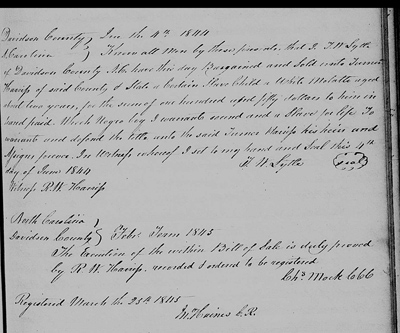 Davidson County } Jne th 4th 1844
N Carolina } Know all Men by these presents that I F W Lytle
of Davidson County N C have this day Bargained and Sold unto Turner
Harriss of said County & State a Certain Slave Child a White Molatto aged
about two years, for the sum of one hundred and fifty dollars to him in
hand paid. Which Negro boy I warrant sound and a Slave for life To
warrant and defend the title unto the said Turner Harriss his heirs and
Assigns forever. In Witness whereof I set to my hand and Seal this 4th
day of June 1844 F. W. Lytle (Seal)
Witness R. W. Harriss
North Carolina }
Davidson County } Feby Term 1845
The Execution of the within Bill of Sale is duly proved
by R W Harriss. recorded & ordered to be registered
Chs. Mock CCC
Registered March the 25th 1845
M Haines C.R.